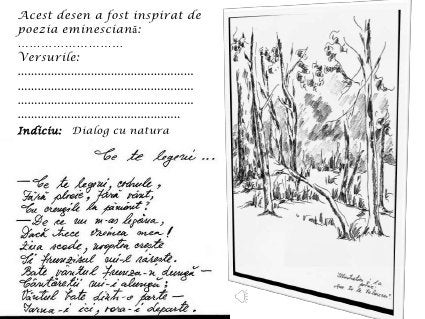 Acest desen a fost inspirat de
poezia eminesciană:
........................
Versurile:
......................................................
......................................................
......................................................
..................................................
Indiciu: Dialog cu natura
Ce te legeni ...
— Ce te legeni, codrule,
Fără ploaie, fără vânt,
Cu crengile la pământ?
— De ce nu m-aș legăna,
Dacă trece vremea mea!
Ziua scade, noaptea crește
Și frunzișul mi-l rărește.
Bate vântul frunza-n dungă —
Cântăreții mi-i alungă;
Vântul bate dintr-o parte —
Iarna-i ici, vara-i departe.